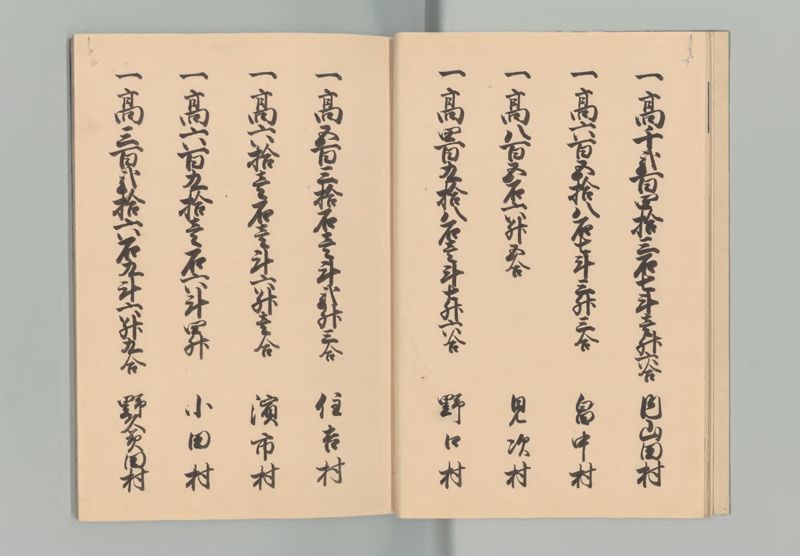 一高千弐百四拾三石七斗壱升六合 円山田村
一高六百五拾八石七斗三升三合 畠中村
一高八百五石六升五合 見次村
一高四百九拾八石壱斗七升六合 野口村
一高五百三拾石壱斗弐升三合 住吉村
一高六拾壱石壱斗六升壱合 濱市村
一高六百九拾壱石六斗四升 小田村
一高三百弐拾六石九斗六升九合 野田村